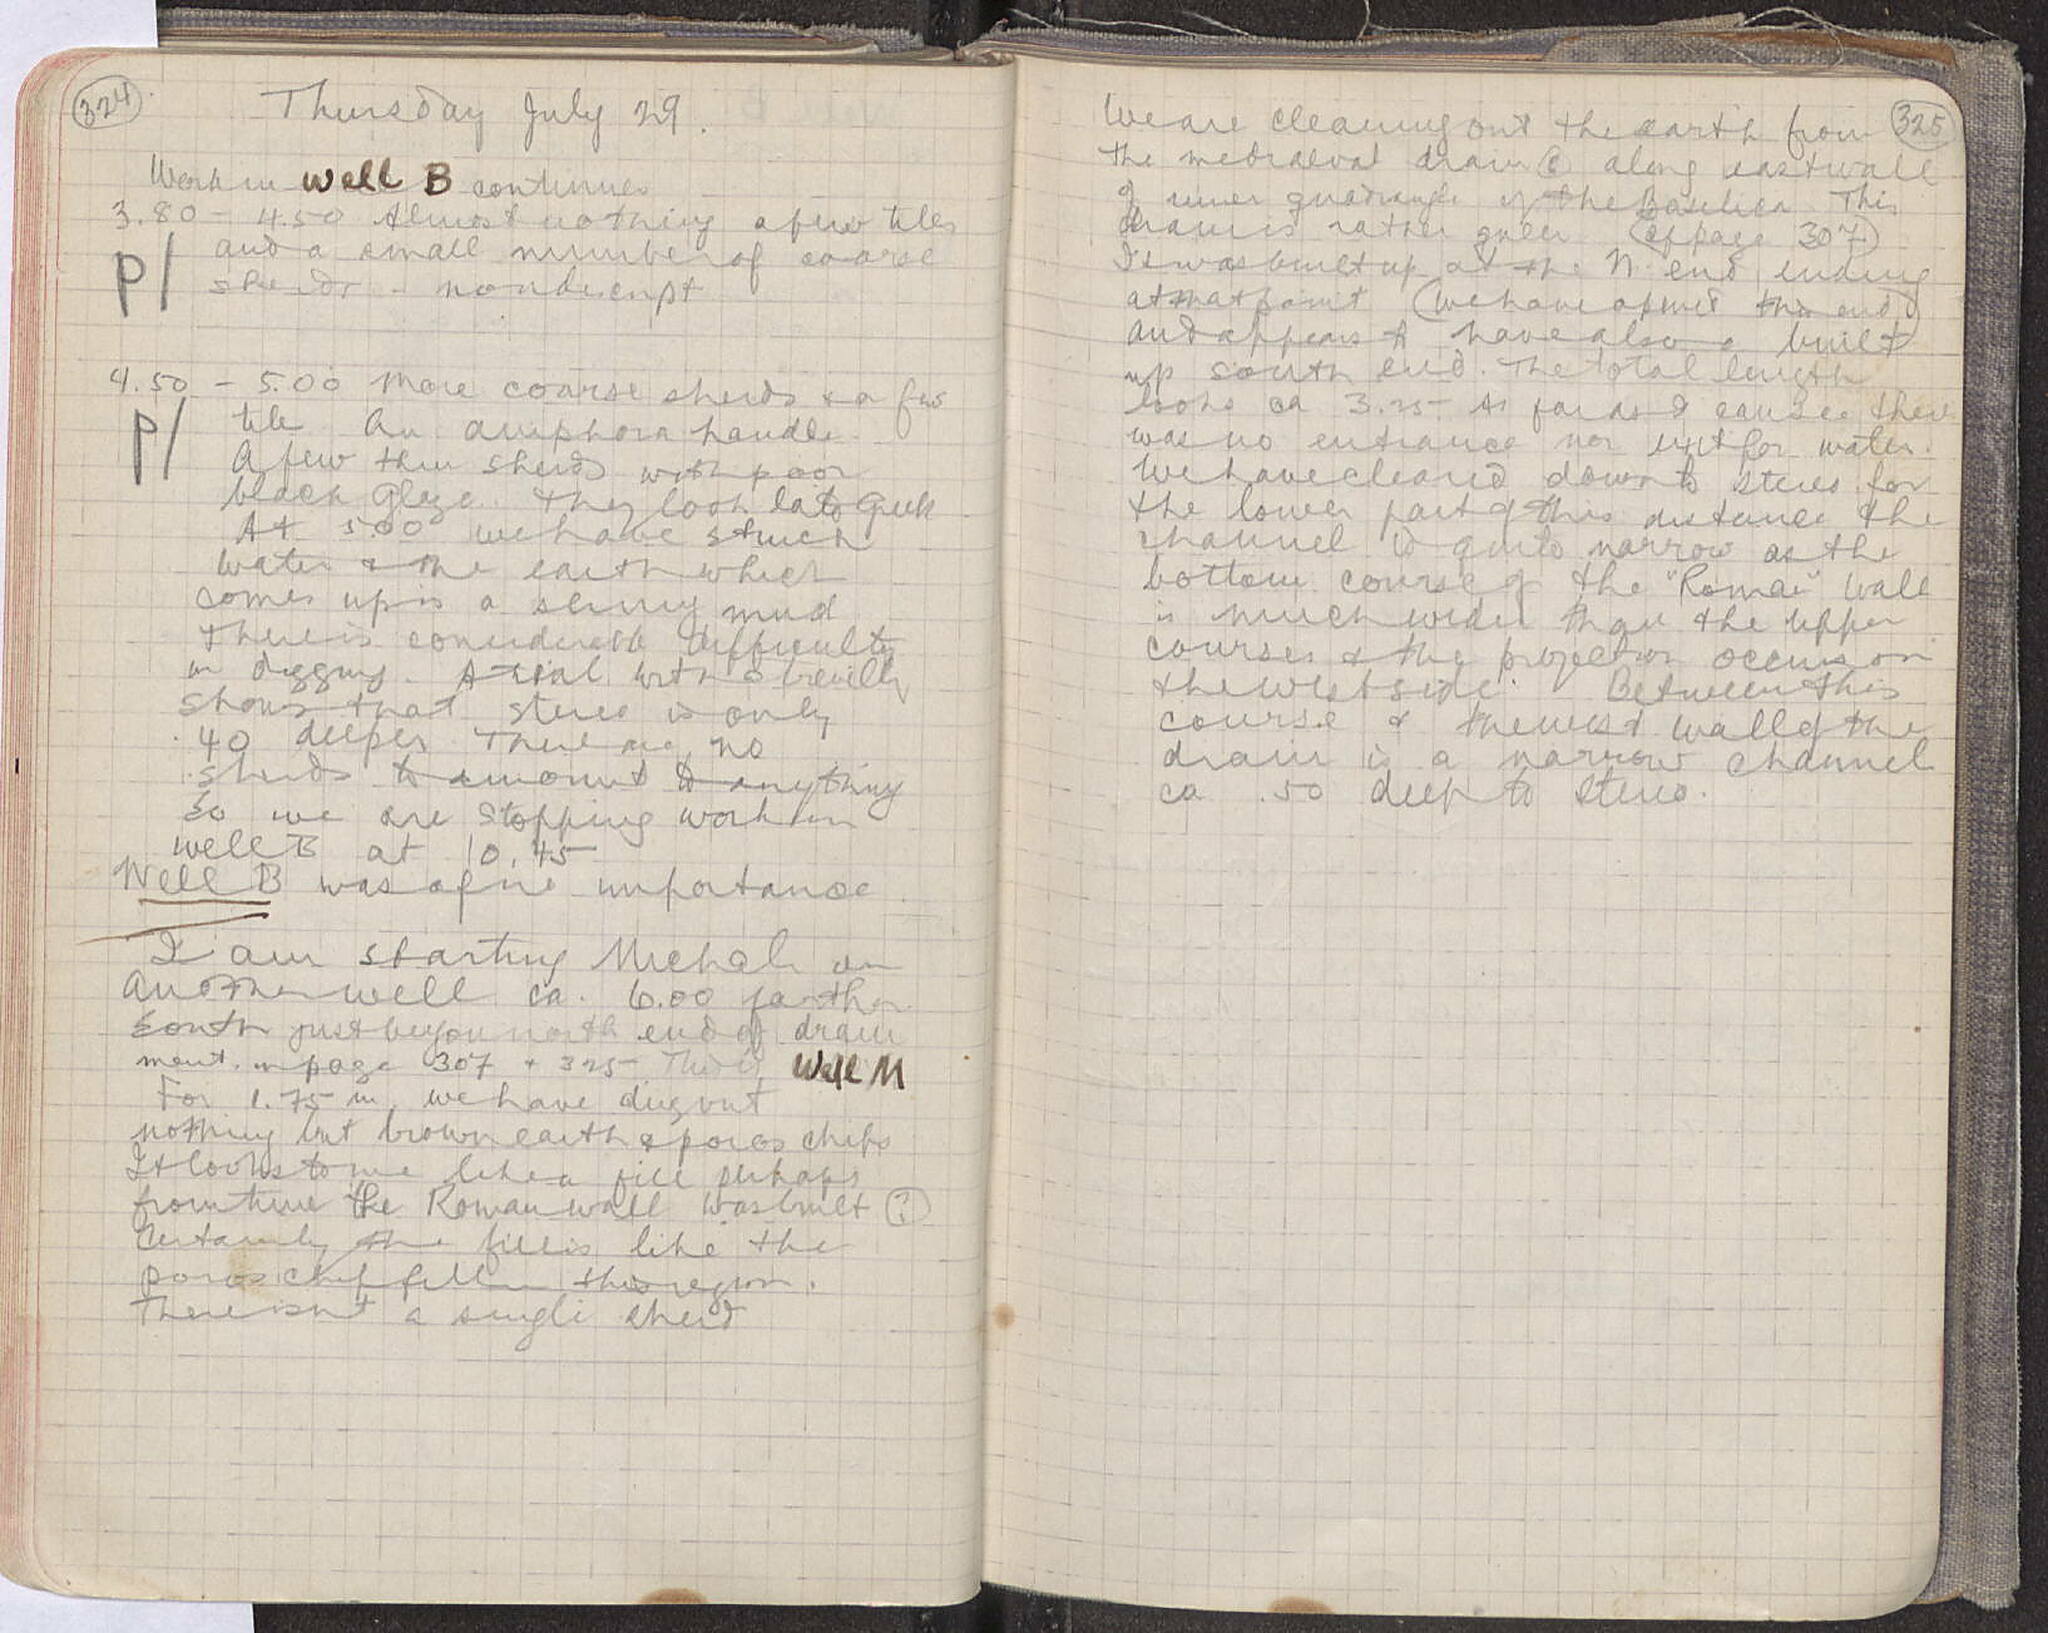 324
Thursday July 29.
Work in Well B continues
3.80 - 4.50 Almost nothing a few tiles
P/ and a small number of coarse
sherds - nondescript
4.50 - 5.00 More coarse sherds & a few
P/ tile An amphora handle.
A few thin sherds with poor
black glaze. They look late Greek
At 5.00 we have struck
water & the earth which
comes up is a slimy mud
There is considerable difficulty
in digging. A trial with a
shows that stereo is only
.40 deeper There are no
sherds to amount to anything
so we are stopping work in
well B at 10.45
Well B was of no importance
I am starting Michali on
another well ca. 6.00 farther
south just beyond north end of drain
ment. on page 307 + 325 This is Well M
For 1.75 m. we have dug out
nothing but brown earth & poros chips
It looks to me like a fill perhaps
from time the Roman wall was built (?)
Certainly the fill is like the
poros chip fill in this region.
There isn't a single sherd
325
We are cleaning out the earth from
the mediaeval drain along east wall
of inner quadrangle of the Basilica This
drain is rather queer (cf page 307)
It was built up at the N. end ending
at that point (we have opened this end)
and appears to have also a built
up south end. The total length
looks ca 3.25 As far as I can see there
was no entrance nor exit for water.
We have cleared down to stereo for
the lower part of this distance the
channel is quite narrow as the
bottom course of the "Roman" wall
is much wider than the upper
courses & the projection occurs on
the west side. Between this
course & the west wall of the
drain is a narrow channel
ca .50 deep to stereo.